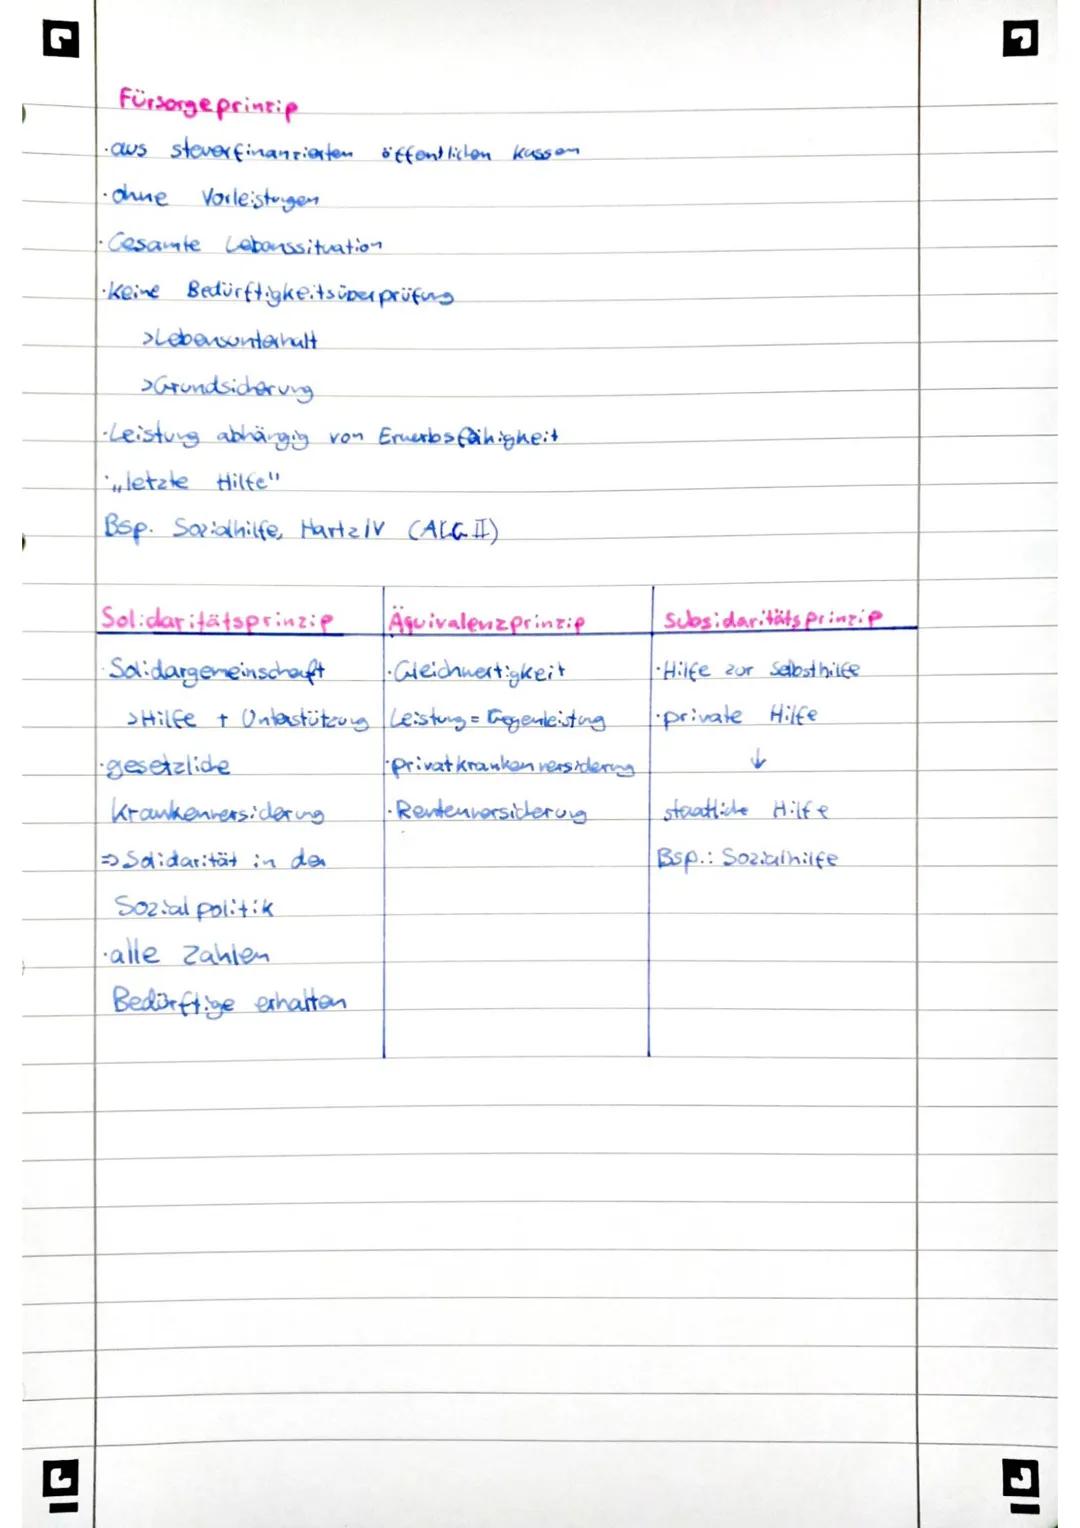 Fürsorgeprinzip
·aus steuerfinanzierten öffentlichen Kassen
·ohne Vorleistungen
·Gesamte Lebenssituation
·Keine Bedürftigkeitsüberprüfung
>Lebensunterhalt
>Grundsicherung
·Leistung abhängig von Erwerbsfähigkeit
·„letzte Hilfe"
Bsp. Sozialhilfe, Hartz IV (ALG II)
Solidaritätsprinzip
·Solidargemeinschaft
>Hilfe + Unterstützung
·gesetzliche
Krankenversicherung
=> Solidarität in der
Sozialpolitik
·alle zahlen
Bedürftige erhalten
Äquivalenzprinzip
·Gleichwertigkeit
Leistung = Gegenleistung
·privatkrankenversicherung
·Rentenversicherung
Subsidaritätsprinzip
·Hilfe zur Selbsthilfe
·private Hilfe
↓
staatliche Hilfe
Bsp.: Sozialhilfe